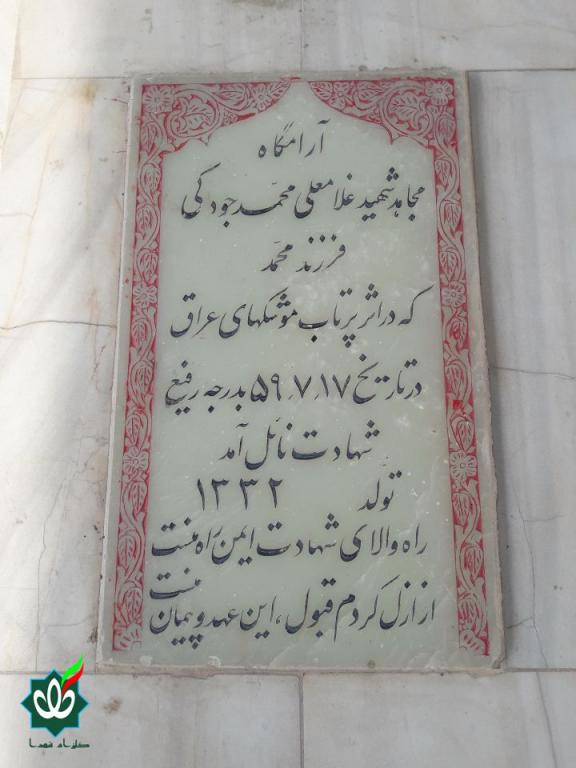 آرامگاه
مجاهد شهید غلامعلی محمد جودکی
فرزند محمد
که در اثر پرتاب موشکهای عراق
در تاریخ ۵۹٫۷٫۱۷ بدرجه رفیع
شهادت نائل آمد
تولد ۱۳۳۲
راه والای شهادت ایمن راه منست
از ازل کردم قبول، این عهد و پیمان منست
گلزار شهدا